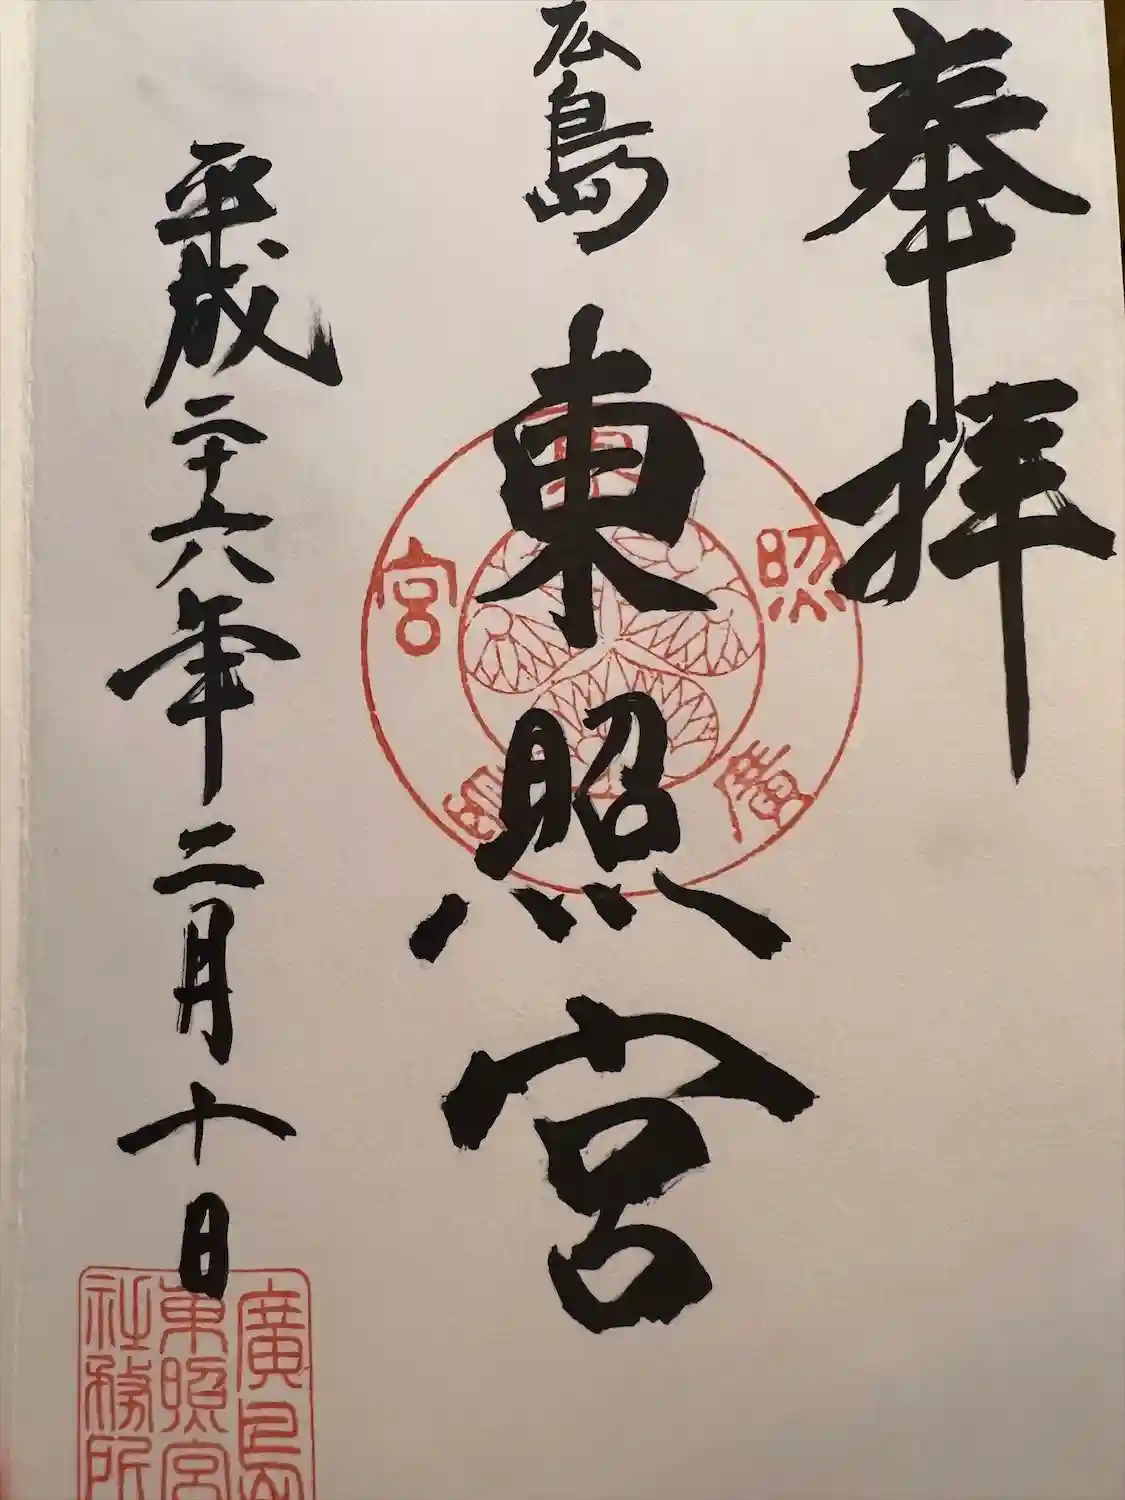 奉拝
広島
東照宮
平成二十六年二月十日
東
照
廣
島
宮
廣島
東照宮
社務所